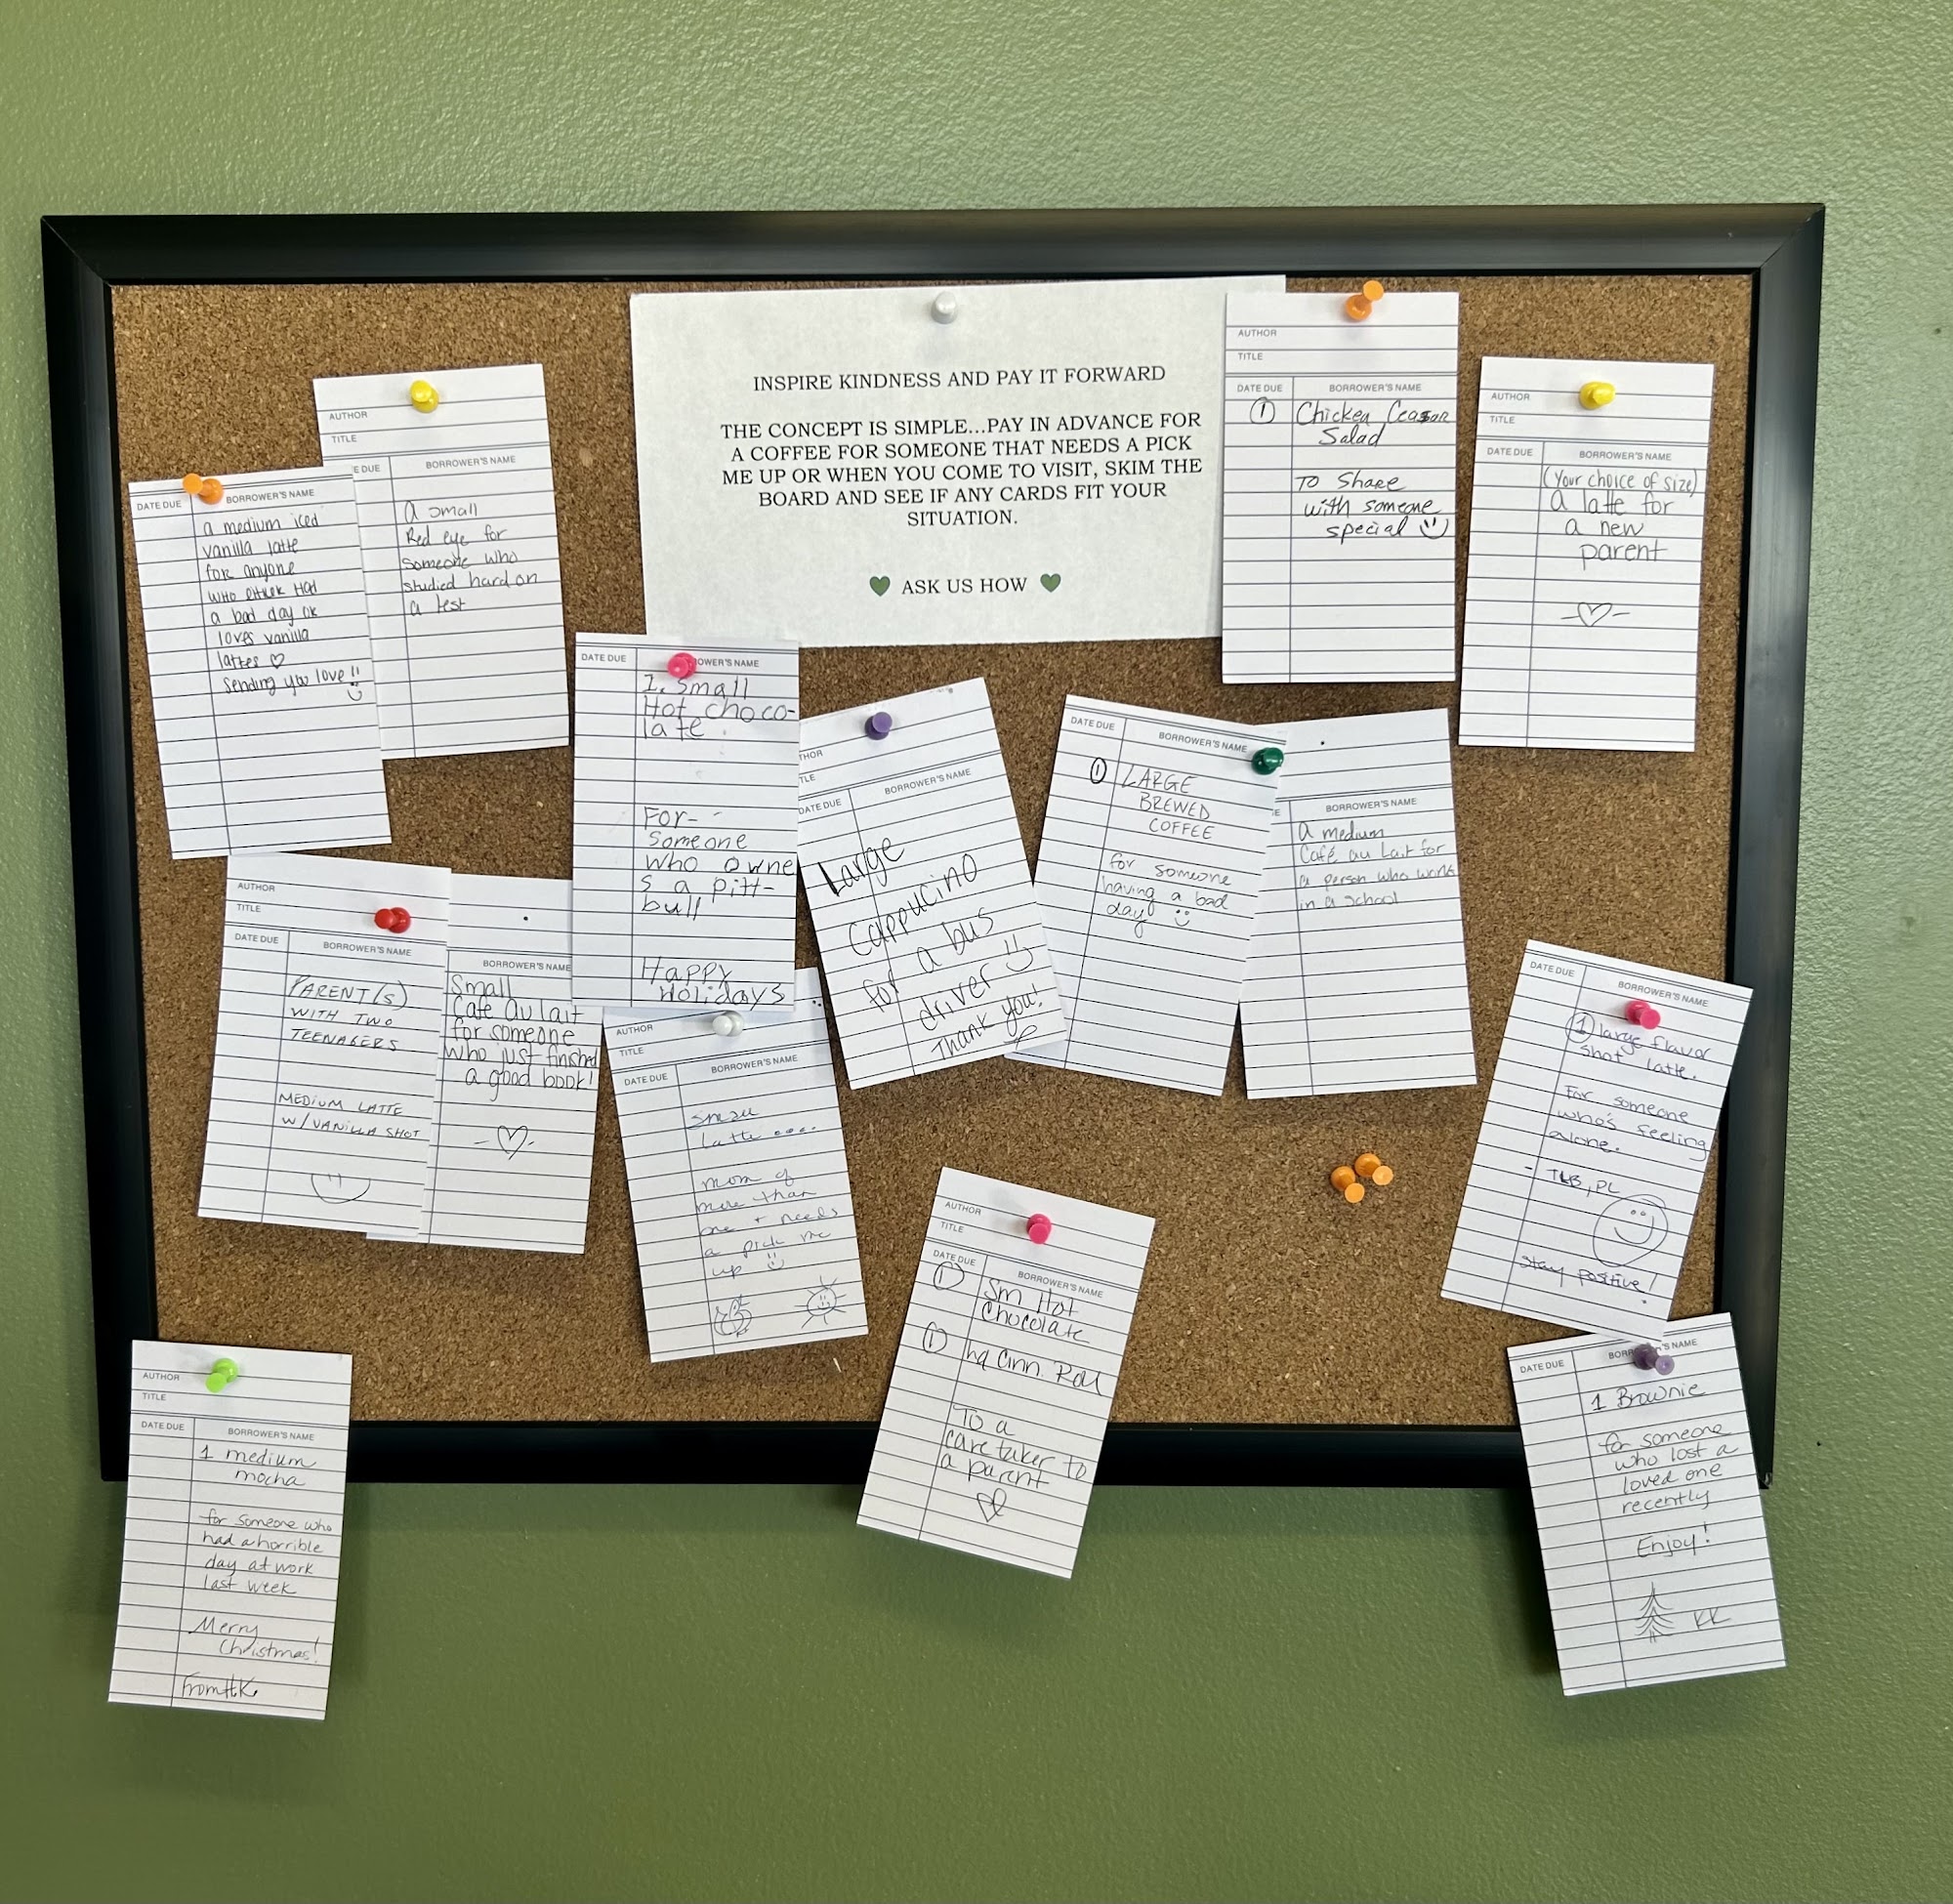 INSPIRE KINDNESS AND PAY IT FORWARD
THE CONCEPT IS SIMPLE...PAY IN ADVANCE FOR
A COFFEE FOR SOMEONE THAT NEEDS A PICK
ME UP OR WHEN YOU COME TO VISIT, SKIM THE
BOARD AND SEE IF ANY CARDS FIT YOUR
SITUATION.
💚 ASK US HOW 💚
DATE DUE BORROWER'S NAME
a medium iced
vanilla latte
for anyone
who either had
a bad day or
loves vanilla
lattes ♡
sending you love!!
AUTHOR
TITLE
E DUE BORROWER'S NAME
a small
Red eye for
someone who
studied hard on
a test
AUTHOR
TITLE
DATE DUE BORROWER'S NAME
① Chicken Ceasar
Salad
To Share
with someone
special
AUTHOR
TITLE
DATE DUE BORROWER'S NAME
(Your choice of size)
a latte for
a new
parent
DATE DUE OWER'S NAME
1. Small
Hot choco-
late
For-
Someone
who owne
s a pitt-
bull
Happy
Holidays
THOR
TLE
DATE DUE BORROWER'S NAME
Large
Cappucino
for a bus
driver
Thank you!
DATE DUE BORROWER'S NAME
① LARGE
BREWED
COFFEE
for someone
having a bad
day!
E BORROWER'S NAME
a medium
Café au Lait for
a person who works
in a school
AUTHOR
TITLE
DATE DUE BORROWER'S NAME
PARENT(S)
WITH TWO
TEENAGERS
MEDIUM LATTE
W/VANILLA SHOT
BORROWER'S NAME
Small
Cafe Au lait
for someone
who just finished
a good book!
AUTHOR
TITLE
DATE DUE BORROWER'S NAME
small
latte ....
mom of
more than
one + needs
a pick me
up
DATE DUE BORROWER'S NAME
① large flavor
shot latte.
For someone
who's feeling
alone.
- TLB, PL
Stay positive!
AUTHOR
TITLE
DATE DUE BORROWER'S NAME
① Sm Hot
Chocolate
① Cinn. Roll
To a
caretaker to
a parent
AUTHOR
TITLE
DATE DUE BORROWER'S NAME
1 medium
mocha
for someone who
had a horrible
day at work
last week
Merry
Christmas!
From HK
DATE DUE BORR 'S NAME
1 Brownie
for someone
who lost a
loved one
recently
Enjoy!
KK